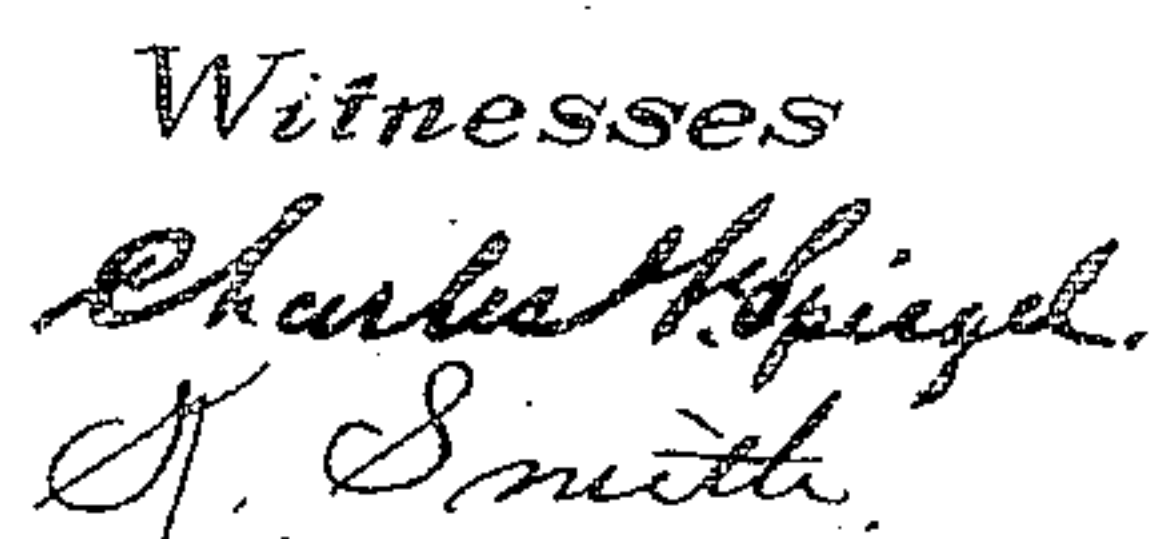 Witnesses
Charles H. Spiegel.
S. Smith.